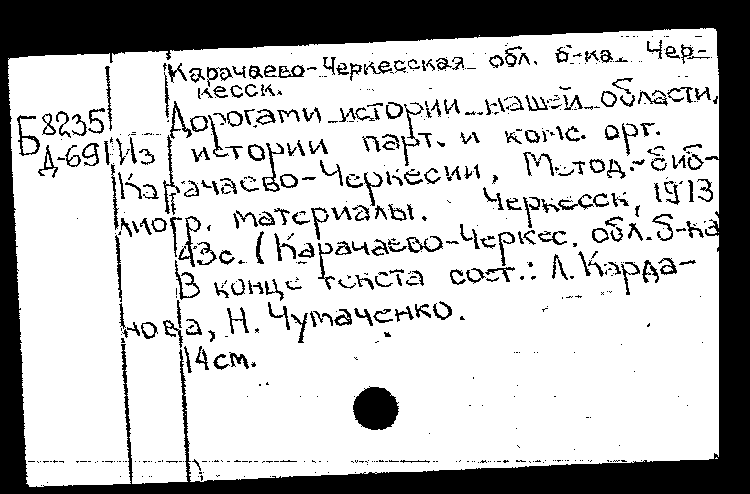 Карачаево-Черкесская обл. б-ка. Чер-
кесск.
Дорогами истории нашей области.
Б 8235
Д-691
Из истории парт. и комс. орг.
Карачаево-Черкесии, Метод.-биб-
лиогр. материалы. Черкесск, 1973
43с. (Карачаево-Черкес. обл. б-ка
В конце текста сост.: Л. Карда-
нова, Н. Чумаченко.
14см.